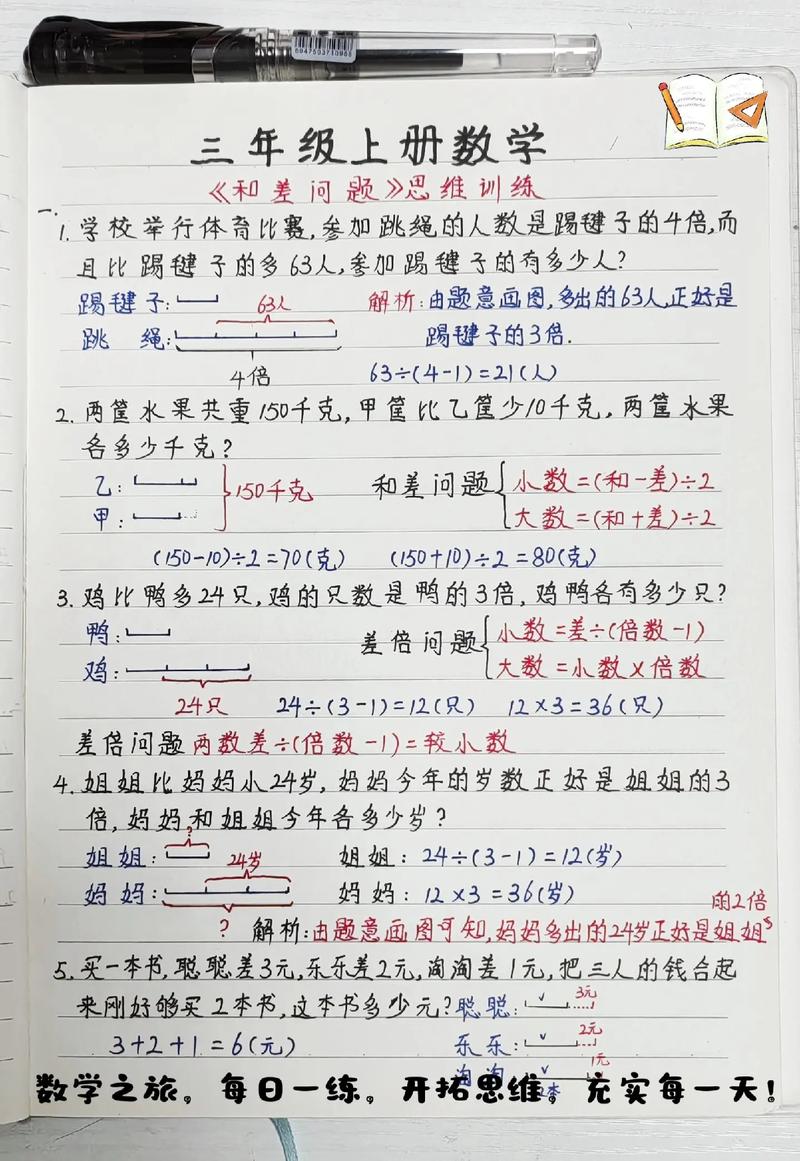 6947593710965
三年级上册数学
《和差问题》思维训练
一.
1. 学校举行体育比赛,参加跳绳的人数是踢毽子的4倍,而
且比踢毽子的多63人,参加踢毽子的有多少人?
踢毽子: 63人 解析:由题意画图,多出的63人,正好是
跳绳: 踢毽子的3倍.
4倍 63÷(4-1)=21(人)
2. 两筐水果共重150千克,甲筐比乙筐少10千克,两筐水果
各多少千克?
乙: 150千克 和差问题 小数=(和-差)÷2
甲: 大数=(和+差)÷2
(150-10)÷2=70(克) (150+10)÷2=80(克)
3. 鸡比鸭多24只,鸡的只数是鸭的3倍,鸡鸭各有多少只?
鸭: 差倍问题 小数=差÷(倍数-1)
鸡: 大数=小数×倍数
24只 24÷(3-1)=12(只) 12×3=36(只)
差倍问题 两数差÷(倍数-1)=较小数
4. 姐姐比妈妈小24岁,妈妈今年的岁数正好是姐姐的3
倍,妈妈和姐姐今年各多少岁?
?
姐姐: 24岁 姐姐: 24÷(3-1)=12(岁)
妈妈: 妈妈: 12×3=36(岁)
的2倍
? 解析:由题意画图可知,妈妈多出的24岁正好是姐姐
5. 买一本书,聪聪差3元,乐乐差2元,淘淘差1元,把三人的钱合起
来刚好够买2本书,这本书多少元? 聪聪: 3元
3+2+1=6(元) 乐乐: 2元
淘淘: 1元
2本
数学之旅。每日一练。开拓思维。充实每一天!